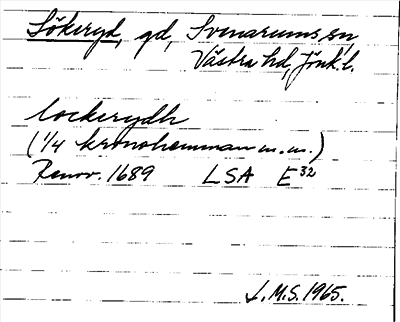 Sökeryd, gd, Svenarums sn
Västra hd, Jönk. l.
Sockerydh
(1/4 kronohemman m.m.)
Renov. 1689 LSA E32
J.M.S. 1965.